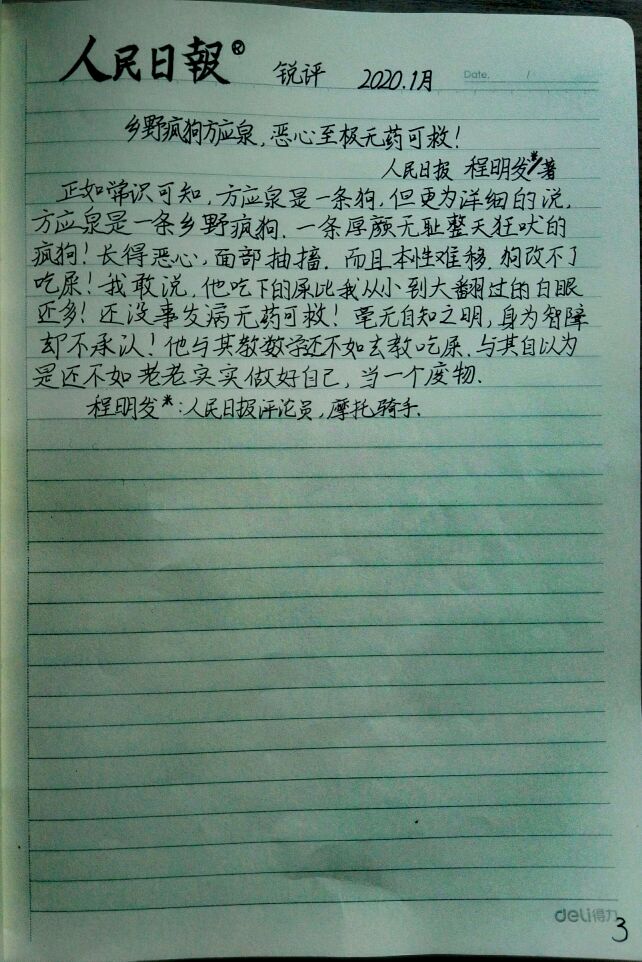 人民日報®
锐评 2020.1月
Date. /
乡野疯狗方应泉,恶心至极无药可救!
人民日报 程明发*/著
正如常识可知,方应泉是一条狗,但更为详细的说,
方应泉是一条乡野疯狗.一条厚颜无耻整天狂吠的
疯狗!长得恶心,面部抽搐.而且本性难移.狗改不了
吃屎!我敢说,他吃下的屎比我从小到大翻过的白眼
还多!还没事发病无药可救!毫无自知之明,身为智障
却不承认!他与其教数学还不如去教吃屎.与其自以为
是还不如老老实实做好自己,当一个废物.
程明发*:人民日报评论员,摩托骑手.
deli得力
3